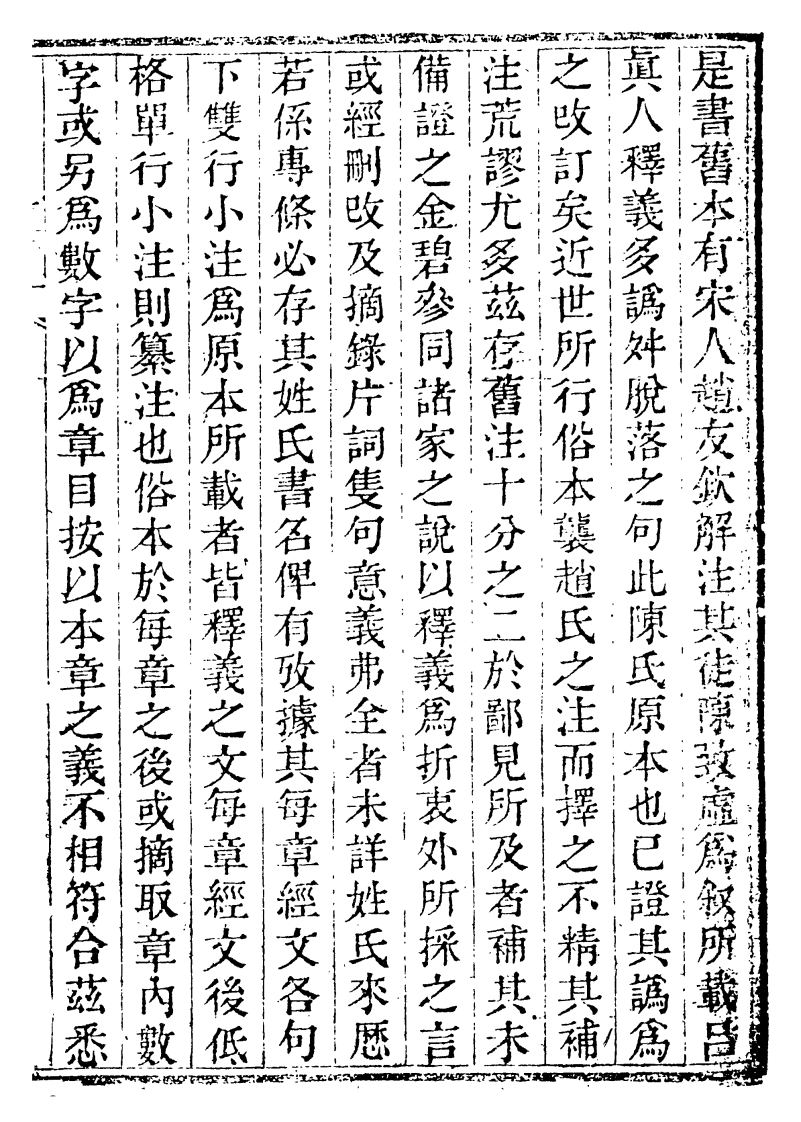 是書舊本有宋人趙友欽解注其徒陳致虛爲叙所載呂
眞人釋義多譌舛脫落之句此陳氏原本也已證其譌爲
之改訂矣近世所行俗本襲趙氏之注而擇之不精其補
注荒謬尤多茲存舊注十分之二於鄙見所及者補其未
備證之金碧參同諸家之說以釋義爲折衷外所採之言
或經刪改及摘錄片詞隻句意義弗全者未詳姓氏來歷
若係專條必存其姓氏書名俾有攷據其每章經文各句
下雙行小注爲原本所載者皆釋義之文每章經文後低
格單行小注則纂注也俗本於每章之後或摘取章內數
字或另爲數字以爲章目按以本章之義不相符合茲悉